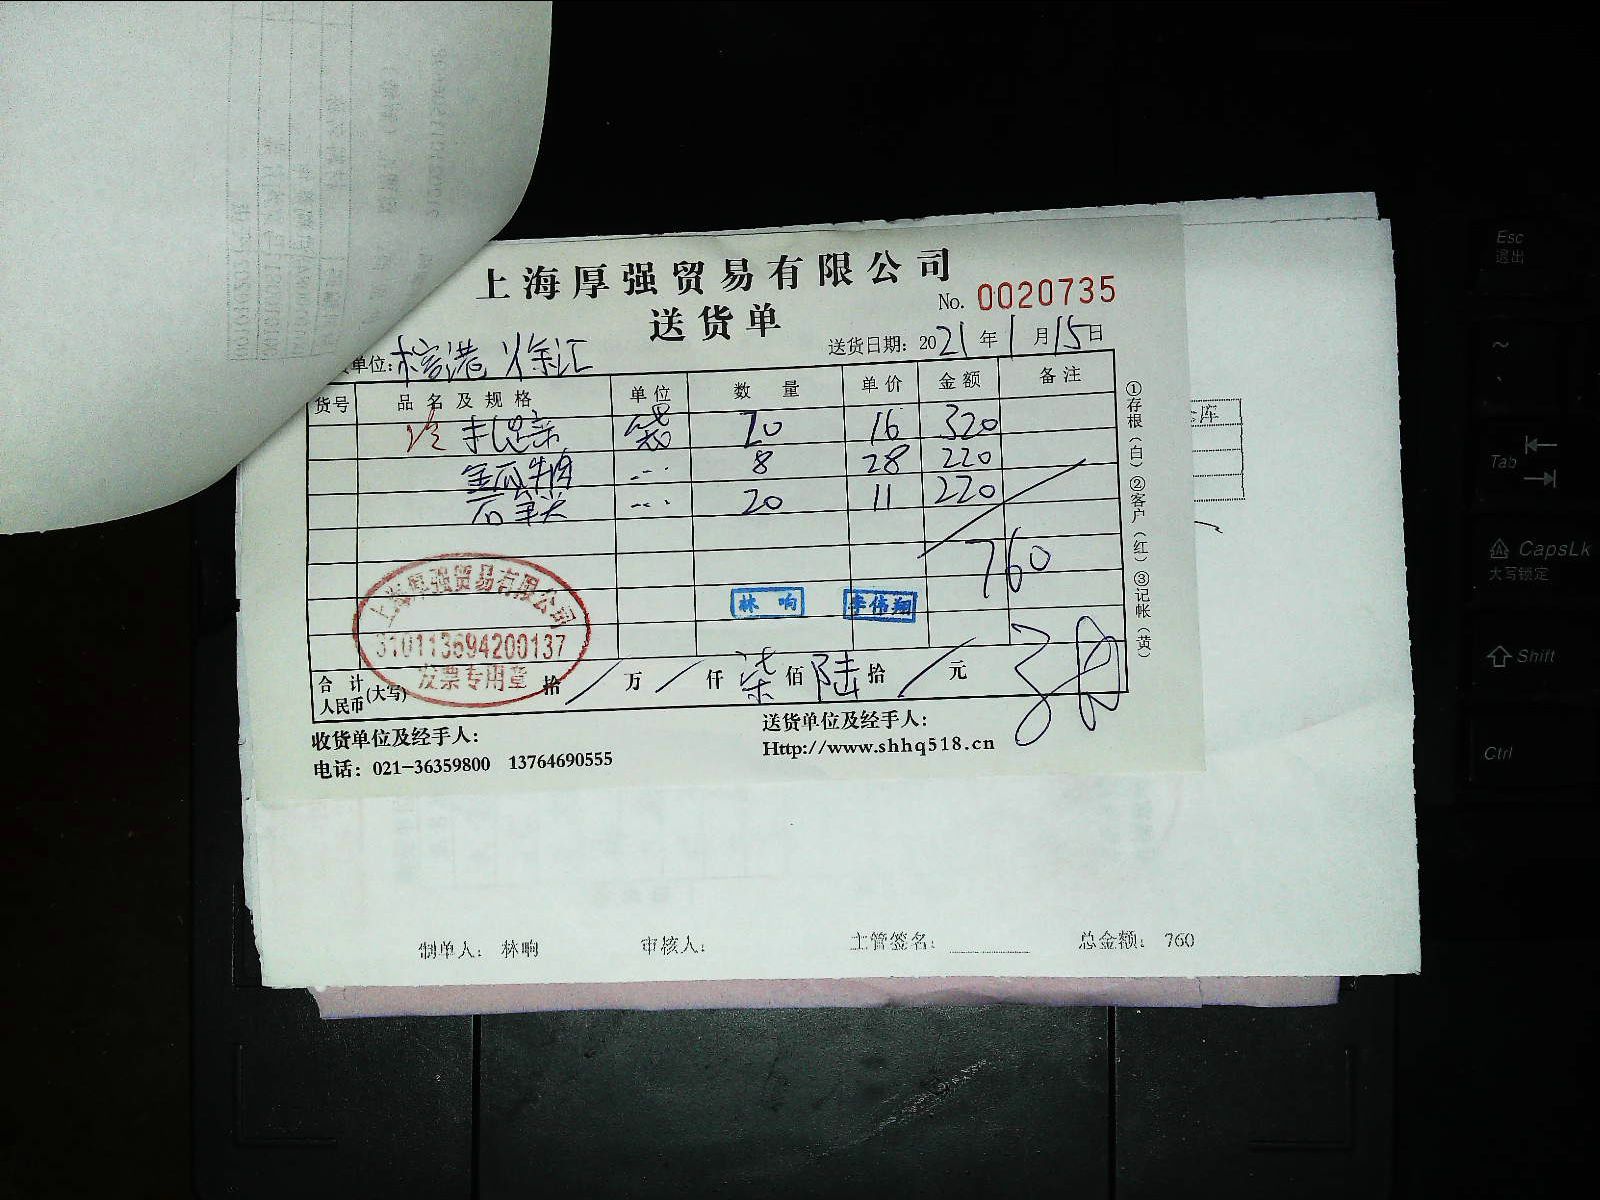 上海厚强贸易有限公司
No. 0020735
送货单
单位: 榕港 徐汇
送货日期: 2021年1月15日
货号 品名及规格 单位 数量 单价 金额 备注
袋 20 16 320
金瓜 8 28 220
20 11 220
760
林响 李伟翔
上海厚强贸易有限公司
310113694200137
发票专用章
合计人民币(大写) 拾 / 万 / 仟 柒 佰 陆 拾 / 元
①存根(白)②客户(红)③记帐(黄)
收货单位及经手人:
送货单位及经手人:
电话: 021-36359800 13764690555
Http://www.shhq518.cn
库
制单人: 林响 审核人: 主管签名: 总金额: 760
Esc
退出
~
Tab
CapsLk
大写锁定
Shift
Ctrl